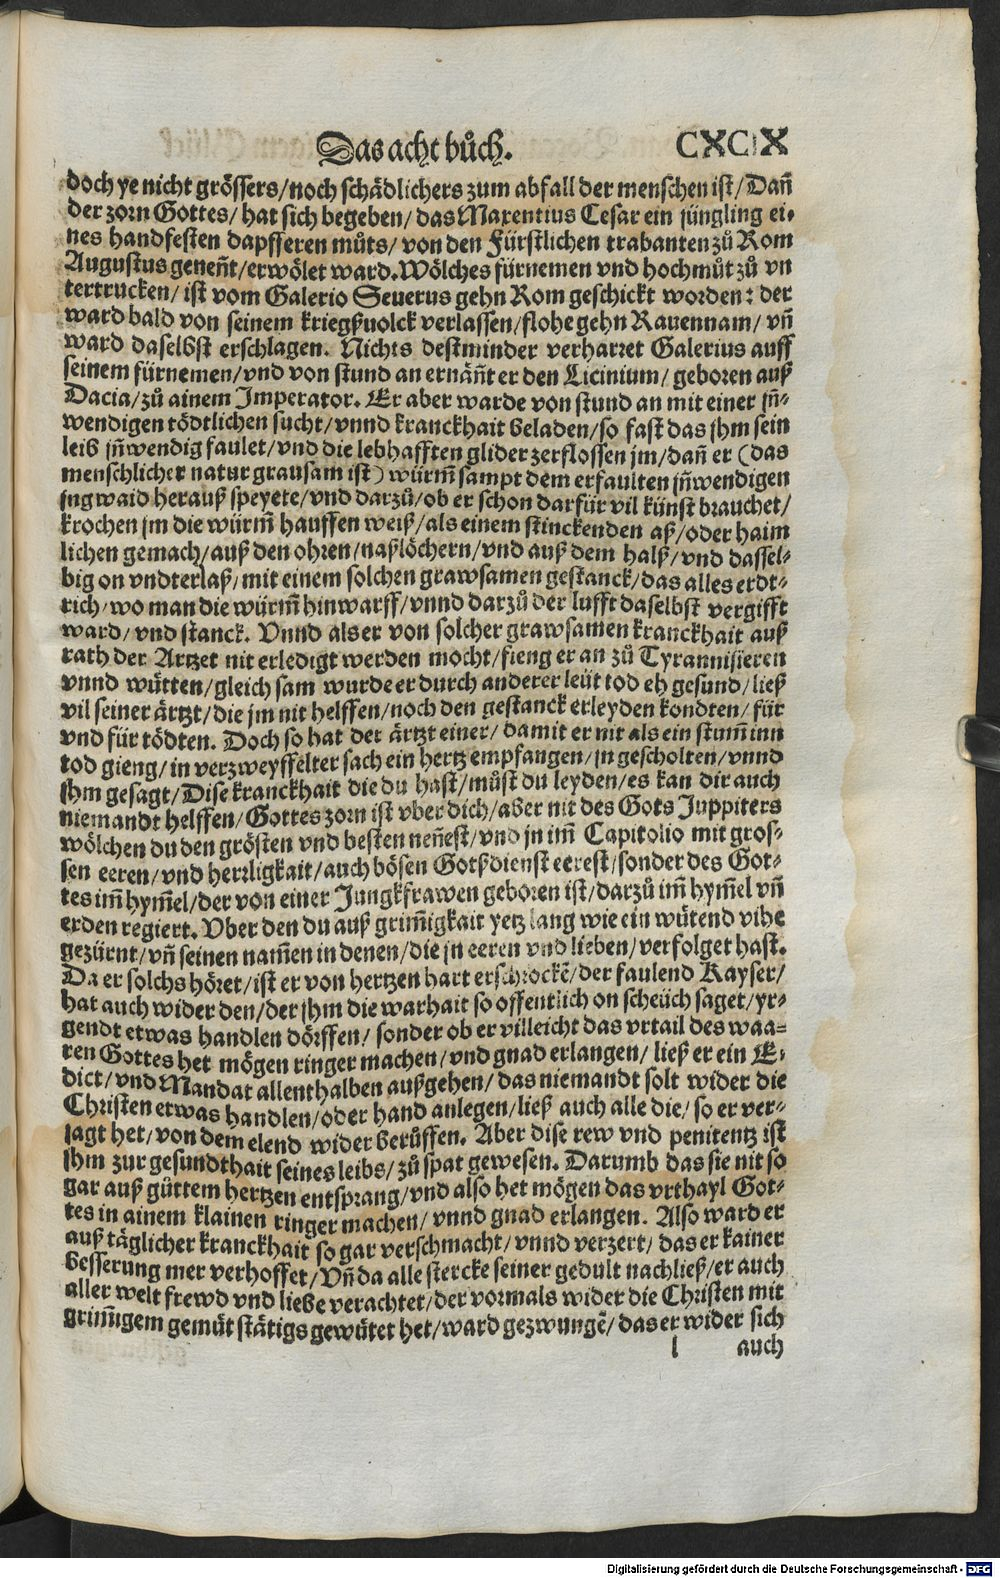 Das acht bůch. CXCIX
doch ye nicht grössers/noch schädlichers zum abfall der menschen ist/Dañ
der zorn Gottes/hat sich begeben/das Maxentius Cesar ein jüngling ei-
nes handfesten dapfferen můts/von den Fürstlichen trabanten zů Rom
Augustus geneñt/erwölet ward. Wölches fürnemen vnd hochmůt zů vn
tertrucken/ist vom Galerio Seuerus gehn Rom geschickt worden: der
ward bald von seinem kriegßuolck verlassen/flohe gehn Rauennam/vñ
ward daselbst erschlagen. Nichts destminder verharret Galerius auff
seinem fürnemen/vnd von stund an ernäñt er den Licinium/geboren auß
Dacia/zů ainem Imperator. Er aber warde von stund an mit einer jñ-
wendigen tödtlichen sucht/vnnd kranckhait beladen/so fast das jhm sein
leib jñwendig faulet/vnd die lebhafften glider zerflossen jm/dañ er (das
menschlicher natur grausam ist) würm̃ sampt dem erfaulten jñwendigen
jngwaid herauß speyete/vnd darzů/ob er schon darfür vil künst brauchet/
krochen jm die würm̃ hauffen weiß/als einem stinckenden aß/oder haim
lichen gemach/auß den ohren/naßlöchern/vnd auß dem halß/vnd dassel-
big on vndterlaß/mit einem solchen grawsamen gestanck/das alles erdt-
rich/wo man die würm̃ hinwarff/vnnd darzů der lufft daselbst vergifft
ward/vnd stanck. Vnnd als er von solcher grawsamen kranckhait auß
rath der Artzet nit erledigt werden mocht/fieng er an zů Tyrannisieren
vnnd wütten/gleich sam wurde er durch anderer leüt tod eh gesund/ließ
vil seiner ärtzt/die jm nit helffen/noch den gestanck erleyden kondten/für
vnd für tödten. Doch so hat der ärtzt einer/damit er nit als ein stum̃ inn
tod gieng/in verzweyffelter sach ein hertz empfangen/jn gescholten/vnnd
jhm gesagt/Dise kranckhait die du hast/můst du leyden/es kan dir auch
niemandt helffen/Gottes zorn ist vber dich/aber nit des Gots Juppiters
wölchen du den grösten vnd besten neñest/vnd jn im̃ Capitolio mit gros-
sen eeren/vnd herrligkait/auch bösen Gotßdienst eerest/sonder des Got-
tes im̃ hym̃el/der von einer Jungkfrawen geboren ist/darzů im̃ hym̃el vñ
erden regiert. Vber den du auß grim̃igkait yetz lang wie ein wütend vihe
gezürnt/vñ seinen nam̃en in denen/die jn eeren vnd lieben/verfolget hast.
Da er solchs höret/ist er von hertzen hart erschrockẽ/der faulend Kayser/
hat auch wider den/der jhm die warhait so offentlich on scheüch saget/yr-
gendt etwas handlen dörffen/sonder ob er villeicht das vrtail des waa-
ren Gottes het mögen ringer machen/vnd gnad erlangen/ließ er ein E-
dict/vnd Mandat allenthalben außgehen/das niemandt solt wider die
Christen etwas handlen/oder hand anlegen/ließ auch alle die/so er ver-
jagt het/von dem elend wider berůffen. Aber dise rew vnd penitentz ist
jhm zur gesundthait seines leibs/zů spat gewesen. Darumb das sie nit so
gar auß güttem hertzen entsprang/vnd also het mögen das vrthayl Got-
tes in ainem klainen ringer machen/vnnd gnad erlangen. Also ward er
auß täglicher kranckhait so gar verschmacht/vnnd verzert/das er kainer
besserung mer verhoffet/Vñ da alle stercke seiner gedult nachließ/er auch
aller welt frewd vnd liebe verachtet/der vormals wider die Christen mit
grim̃igem gemüt stätigs gewütet het/ward gezwungẽ/das er wider sich
l auch
Digitalisierung gefördert durch die Deutsche Forschungsgemeinschaft - DFG